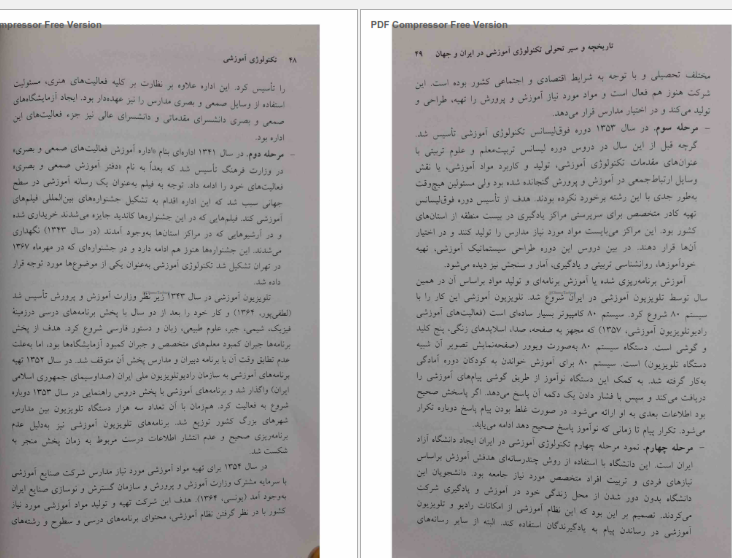 PDF Compressor Free Version
۴۸ تکنولوژی آموزشی
را تأسیس کرد. این اداره علاوه بر نظارت بر کلیه فعالیت‌های هنری، مسئولیت
استفاده از وسایل صمعی و بصری مدارس را نیز عهده‌دار بود. ایجاد آزمایشگاه‌های
صمعی و بصری دانشسرای مقدماتی و دانشسرای عالی نیز جزء فعالیت‌های این
اداره بود.
– مرحله دوم. در سال ۱۳۴۱ اداره‌ای بنام «اداره آموزش فعالیت‌های صمعی و بصری»
در وزارت فرهنگ تأسیس شد که بعداً به نام «دفتر آموزش صمعی و بصری»
فعالیت‌های خود را ادامه داد. توجه به فیلم به‌عنوان یک رسانه آموزشی در سطح
جهانی سبب شد که این اداره اقدام به تشکیل جشنواره‌های بین‌المللی فیلم‌های
آموزشی کند. فیلم‌هایی که در این جشنواره‌ها کاندید جایزه می‌شدند خریداری شده
و در آرشیوهایی که در مراکز استان‌ها به‌وجود آمدند (در سال ۱۳۴۳) نگهداری
می‌شدند. این جشنواره‌ها هنوز هم ادامه دارد و در جشنواره‌ای که در مهرماه ۱۳۶۷
در تهران تشکیل شد تکنولوژی آموزشی به‌عنوان یکی از موضوع‌ها مورد توجه قرار
داده شد.
تلویزیون آموزشی در سال ۱۳۴۳ زیر نظر وزارت آموزش و پرورش تأسیس شد
(لطفی‌پور، ۱۳۶۴) و کار خود را بعد از دو سال با پخش برنامه‌های درسی درزمینهٔ
فیزیک، شیمی، جبر، علوم طبیعی، زبان و دستور فارسی شروع کرد. هدف از پخش
برنامه‌ها جبران کمبود معلم‌های متخصص و جبران کمبود آزمایشگاه‌ها بود، اما به‌علت
عدم تطابق وقت آن با برنامه دبیران و مدارس پخش آن متوقف شد. در سال ۱۳۵۲ تهیه
برنامه‌های آموزشی به سازمان رادیوتلویزیون ملی ایران (صداوسیمای جمهوری اسلامی
ایران) واگذار شد و برنامه‌های آموزشی با پخش دروس راهنمایی در سال ۱۳۵۳ دوباره
شروع به فعالیت کرد. هم‌زمان با آن تعداد سه هزار دستگاه تلویزیون بین مدارس
شهرهای بزرگ کشور توزیع شد. برنامه‌های تلویزیون آموزشی نیز به‌دلیل عدم
برنامه‌ریزی صحیح و عدم انتشار اطلاعات درست مربوط به زمان پخش منجر به
شکست شد.
در سال ۱۳۵۴ برای تهیه مواد آموزشی مورد نیاز مدارس شرکت صنایع آموزشی
با سرمایه مشترک وزارت آموزش و پرورش و سازمان گسترش و نوسازی صنایع ایران
به‌وجود آمد (یونسی، ۱۳۶۴). هدف این شرکت تهیه و تولید مواد آموزشی مورد نیاز
کشور با در نظر گرفتن نظام آموزشی، محتوای برنامه‌های درسی و سطوح و رشته‌های
PDF Compressor Free Version
تاریخچه و سیر تحولی تکنولوژی آموزشی در ایران و جهان ۴۹
مختلف تحصیلی و با توجه به شرایط اقتصادی و اجتماعی کشور بوده است. این
شرکت هنوز هم فعال است و مواد مورد نیاز آموزش و پرورش را تهیه، طراحی و
تولید می‌کند و در اختیار مدارس قرار می‌دهد.
– مرحله سوم. در سال ۱۳۵۳ دوره فوق‌لیسانس تکنولوژی آموزشی تأسیس شد.
گرچه قبل از این سال در دروس دوره لیسانس تربیت‌معلم و علوم تربیتی با
عنوان‌های مقدمات تکنولوژی آموزشی، تولید و کاربرد مواد آموزشی، یا نقش
وسایل ارتباط‌جمعی در آموزش و پرورش گنجانده شده بود ولی مسئولین هیچ‌وقت
به‌طور جدی با این رشته برخورد نکرده بودند. هدف از تأسیس دوره فوق‌لیسانس
تهیه کادر متخصص برای سرپرستی مراکز یادگیری در بیست منطقه از استان‌های
کشور بود. این مراکز می‌بایست مواد مورد نیاز مدارس را تولید کنند و در اختیار
آن‌ها قرار دهند. در بین دروس این دوره طراحی سیستماتیک آموزشی، تهیه
خودآموزها، روانشناسی تربیتی و یادگیری، آمار و سنجش نیز دیده می‌شود.
آموزش برنامه‌ریزی شده یا آموزش برنامه‌ای و تولید مواد براساس آن در همین
سال توسط تلویزیون آموزشی در ایران شروع شد. تلویزیون آموزشی این کار را با
سیستم ۸۰ شروع کرد. سیستم ۸۰ کامپیوتر بسیار ساده‌ای است (فعالیت‌های آموزشی
رادیوتلویزیون آموزشی، ۱۳۵۷) که مجهز به صفحه، صدا، اسلایدهای رنگی، پنج کلید
و گوشی است. دستگاه سیستم ۸۰ به‌صورت ویوور (صفحه‌نمایش تصویر آن شبیه
دستگاه تلویزیون) است. سیستم ۸۰ برای آموزش خواندن به کودکان دوره آمادگی
به‌کار گرفته شد. به کمک این دستگاه نوآموز از طریق گوشی پیام‌های آموزشی را
دریافت می‌کند و سپس با فشار دادن یک دکمه آن پاسخ می‌دهد. اگر پاسخش صحیح
بود اطلاعات بعدی به او ارائه می‌شود. در صورت غلط بودن پیام پاسخ دوباره تکرار
می‌شود. تکرار پیام تا زمانی که نوآموز پاسخ صحیح دهد ادامه می‌یابد.
– مرحله چهارم. نمود مرحله چهارم تکنولوژی آموزشی در ایران ایجاد دانشگاه آزاد
ایران است. این دانشگاه با استفاده از روش چندرسانه‌ای هدفش آموزش براساس
نیازهای فردی و تربیت افراد متخصص مورد نیاز جامعه بود. دانشجویان این
دانشگاه بدون دور شدن از محل زندگی خود در آموزش و یادگیری شرکت
می‌کردند. تصمیم بر این بود که این نظام آموزشی از امکانات رادیو و تلویزیون
آموزشی در رساندن پیام به یادگیرندگان استفاده کند. البته از سایر رسانه‌های